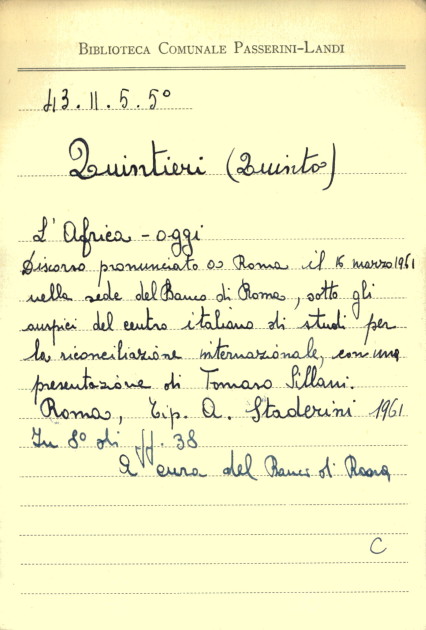 BIBLIOTECA COMUNALE PASSERINI-LANDI
43.II.5.5°
Quintieri (Quinto)
L'Africa - oggi
Discorso pronunciato a Roma il 16 marzo 1961
nella sede del Banco di Roma, sotto gli
auspici del centro italiano di studi per
la riconciliazione internazionale, con una
presentazione di Tomaso Sillani.
Roma, Tip. A. Staderini 1961
In 8° di ff. 38
A cura del Banco di Roma
C